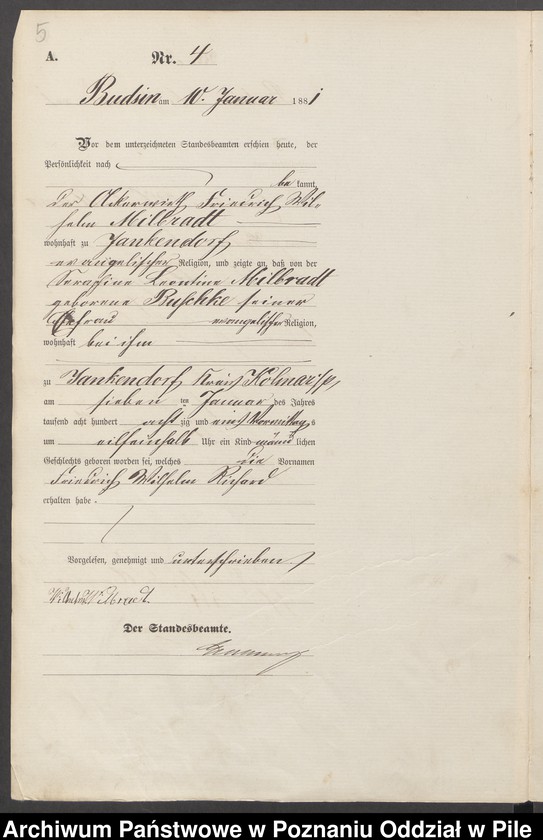 5
A. Nr. 4
Budsin am 10. Januar 1881
Vor dem unterzeichneten Standesbeamten erschien heute, der
Persönlichkeit nach
bekannt,
der Ackerwirth Friedrich Wil-
helm Milbradt
wohnhaft zu Jankendorf
evangelischer Religion, und zeigte an, daß von der
Serafine Leontine Milbradt
geborene Buschke seiner
Ehefrau evangelischer Religion,
wohnhaft bei ihm
zu Jankendorf Kreis Kolmar i/p,
am sieben ten Januar des Jahres
tausend acht hundert achtzig und eins Vormittags
um eilfeinhalb Uhr ein Kind männlichen
Geschlechts geboren worden sei, welches die Vornamen
Friedrich Wilhelm Richard
erhalten habe.
Vorgelesen, genehmigt und unterschrieben
Der Standesbeamte.
Archiwum Państwowe w Poznaniu Oddział w Pile